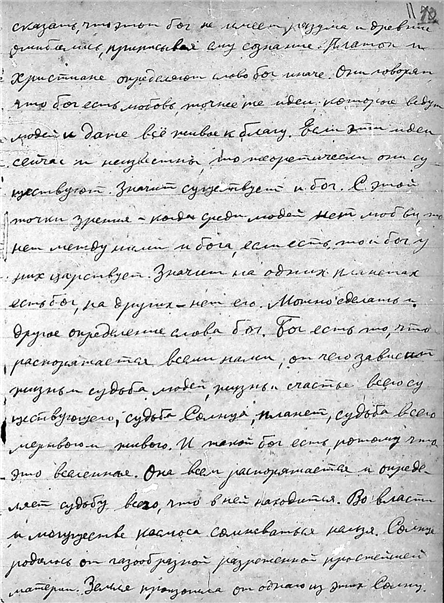 11 72
сказать, что этот бог не имеет разума и древние
ошибались, приписывая ему сознание. Платон и
Христиане определяют слово бог иначе. Они говорят
что бог есть любовь, точнее те идеи которые ведут
людей и даже всё живое к благу. Если эти идеи
сейчас и неизвестны, то теоретически они су-
ществуют. Значит существует и бог. С этой
точки зрения – когда среди людей нет любви, то
нет между ними и бога, если есть, то и бог у
них царствует. Значит на одних планетах
есть бог, на других – нет его. Можно сделать и
другое определение слова бог. Бог есть то, что
распоряжается всеми нами, от чего зависит
жизнь и судьба людей, жизнь и счастье всего су
ществующего, судьба Солнца, планет, судьба всего
мертвого и живого. И такой бог есть, потому что
это вселенная. Она всем распоряжается и опреде-
ляет судьбу всего, что в ней находится. Во власти
и могуществе космоса сомневаться нельзя. Солнце
родилось от газообразной разреженной простейшей
материи. Земля произошла от одного из этих Солнц.